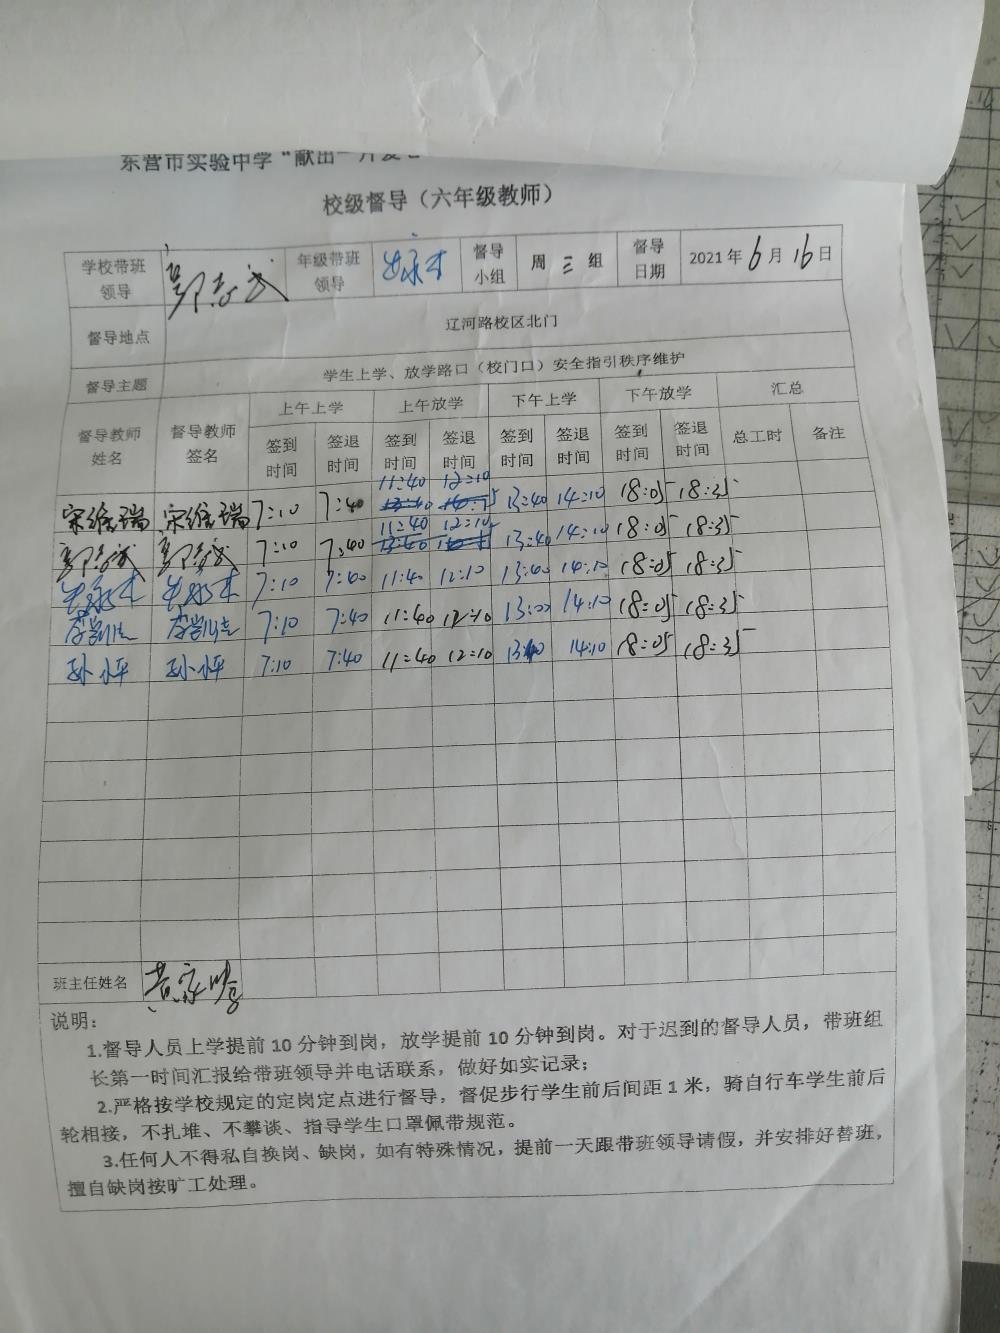 东营市实验中学“献出一片爱心
校级督导（六年级教师）
学校带班领导 郭志武 年级带班领导 督导小组 周三组 督导日期 2021年6月16日
督导地点 辽河路校区北门
督导主题 学生上学、放学路口（校门口）安全指引秩序维护
督导教师姓名 督导教师签名 上午上学 上午放学 下午上学 下午放学 汇总
签到时间 签退时间 签到时间 签退时间 签到时间 签退时间 签到时间 签退时间 总工时 备注
11:40 12:10
宋维瑞 宋维瑞 7:10 7:40 13:40 14:10 18:05 18:35
11:40 12:10
郭志武 郭志武 7:10 7:40 13:40 14:10 18:05 18:35
7:10 7:40 11:40 12:10 13:40 14:10 18:05 18:35
李凯 李凯 7:10 7:40 11:40 12:10 13:00 14:10 18:05 18:35
孙怦 孙怦 7:10 7:40 11:40 12:10 13:40 14:10 18:05 18:35
班主任姓名 黄家
说明：
1.督导人员上学提前10分钟到岗，放学提前10分钟到岗。对于迟到的督导人员，带班组
长第一时间汇报给带班领导并电话联系，做好如实记录；
2.严格按学校规定的定岗定点进行督导，督促步行学生前后间距1米，骑自行车学生前后
轮相接，不扎堆、不攀谈、指导学生口罩佩带规范。
3.任何人不得私自换岗、缺岗，如有特殊情况，提前一天跟带班领导请假，并安排好替班，
擅自缺岗按旷工处理。